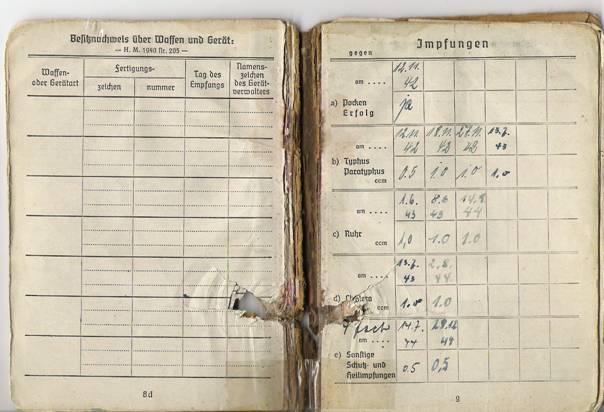 Besitznachweis über Waffen und Gerät:
— H. M. 1940 Nr. 205 —
Waffen- oder Gerätart
Fertigungs-
zeichen
nummer
Tag des Empfangs
Namens-zeichen des Gerät-verwalters
8d
Impfungen
gegen
am .... 12.11. 42
a) Pocken
Erfolg ja
am .... 12.11. 42 18.11. 42 27.11. 42 13.7. 43
b) Typhus
Paratyphus
ccm 0.5 1.0 1.0 1.0
am .... 1.6. 43 8.6. 43 44
c) Ruhr ccm 1,0 1.0 1.0
am .... 13.7. 43 2.8. 44
d) Cholera
ccm 1.0 1.0
am .... 14.7. 44
e) Sonstige
Schutz- und
Heilimpfungen 0.5 0,5
9